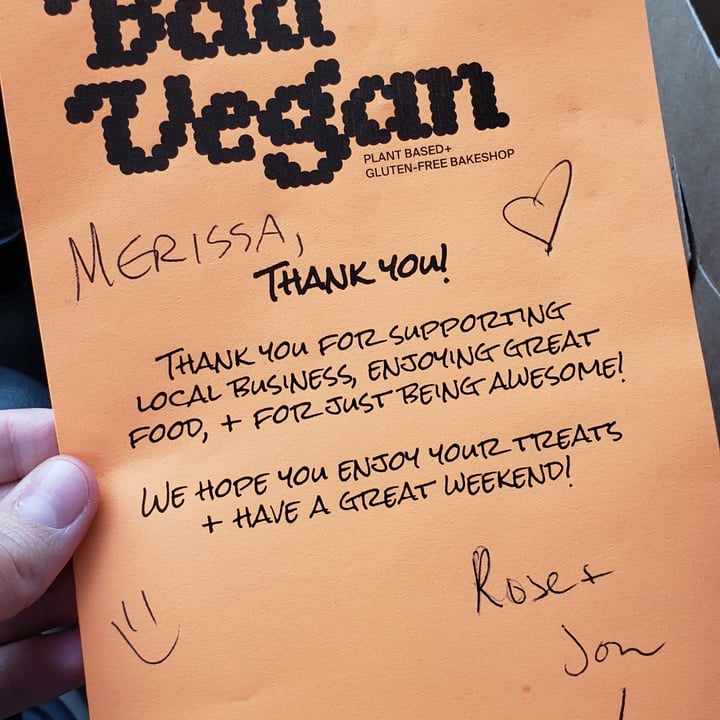 Bad
Vegan
PLANT BASED+
GLUTEN-FREE BAKESHOP
MERISSA,
THANK YOU!
THANK YOU FOR SUPPORTING
LOCAL BUSINESS, ENJOYING GREAT
FOOD, + FOR JUST BEING AWESOME!
WE HOPE YOU ENJOY YOUR TREATS
+ HAVE A GREAT WEEKEND!
Rose+
Jon